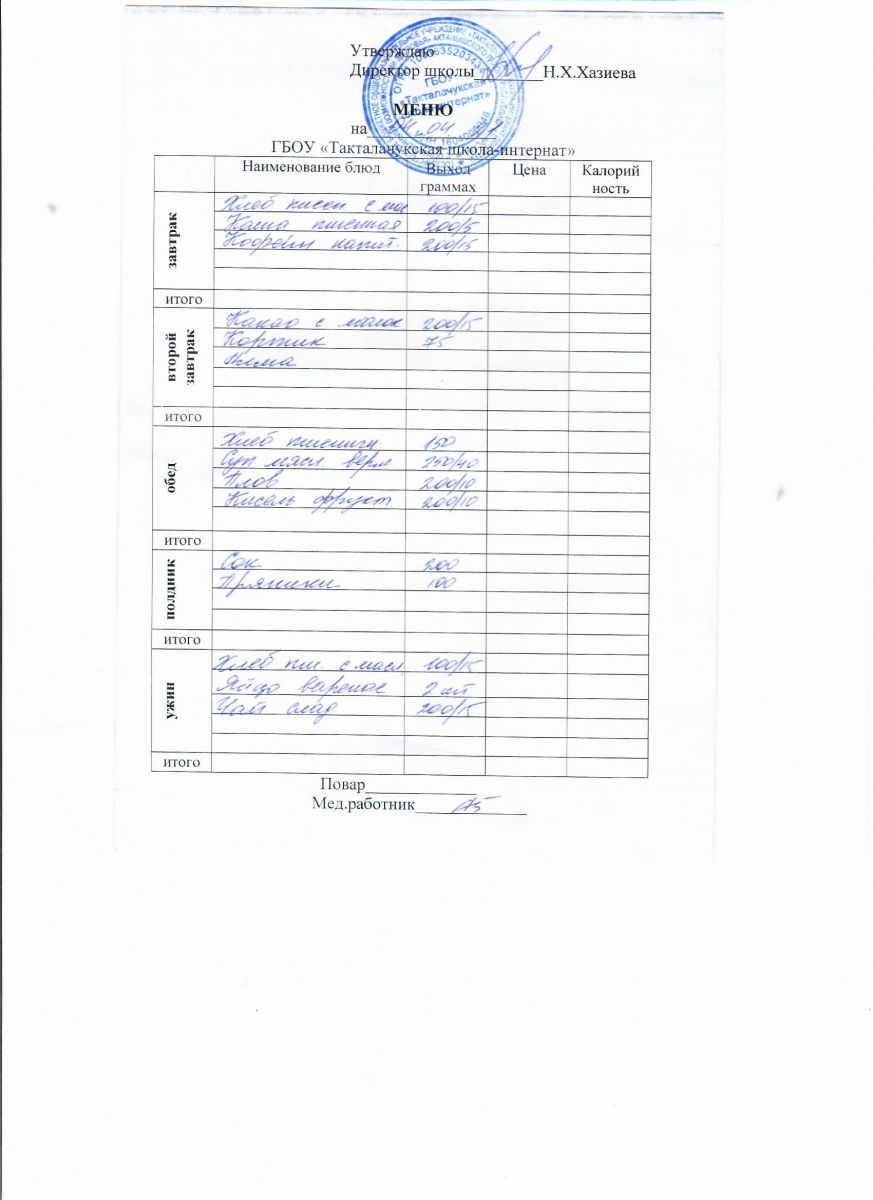 Утверждаю
Директор школы Н.Х.Хазиева
ГБОУ
«Такталачукская
МЕНЮ
на 04
ГБОУ «Такталачукская школа-интернат»
Наименование блюд Выход граммах Цена Калорий ность
завтрак
Хлеб с 100/15
Каша пшенная 200/5
Кофейн напит. 200/15
итого
второй завтрак
Какао с молок 200/15
Коржик 75
итого
обед
Хлеб пшенич 150
Суп мясн верм 250/40
Плов 200/10
Кисель фрукт 200/10
итого
полдник
Сок 200
Пряники 100
итого
ужин
Хлеб пш. с масл 100/15
Яйцо вареное 2 шт
Чай слад 200/15
итого
Повар
Мед.работник